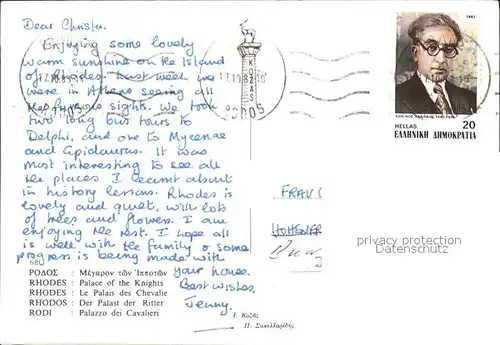 Dear Christa,
Enjoying some lovely
warm sunshine on the Island
of Rhodes. Last week we
were in Athens seeing all
the famous sights. We took
two long bus tours to
Delphi, and one to Mycenae
and Epidaurus. It was
most interesting to see all
the places I learnt about
in history lessons. Rhodes is
lovely and quiet, with lots
of trees and flowers. I am
enjoying the rest. I hope all
is well with the family & some
progress is being made with
your house.
Best wishes,
Jenny.
ΡΟΔΟΣ : Μέγαρον τῶν Ἱπποτῶν
RHODES : Palace of the Knights
RHODES : Le Palais des Chevalie
RHODOS : Der Palast der Ritter
RODI : Palazzo dei Cavalieri
Π. Σακελλαρίδης
ΡΟΔΟΣ
1983
20
HELLAS
ΕΛΛΗΝΙΚΗ ΔΗΜΟΚΡΑΤΙΑ
FRAU
privacy protection
Datenschutz